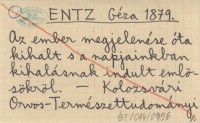 ENTZ Géza 1879.
Az ember megjelenése óta
kihalt s a napjainkban
kihalásnak indult emlő-
sökről. — Kolozsvári
Orvos-Természettudományi